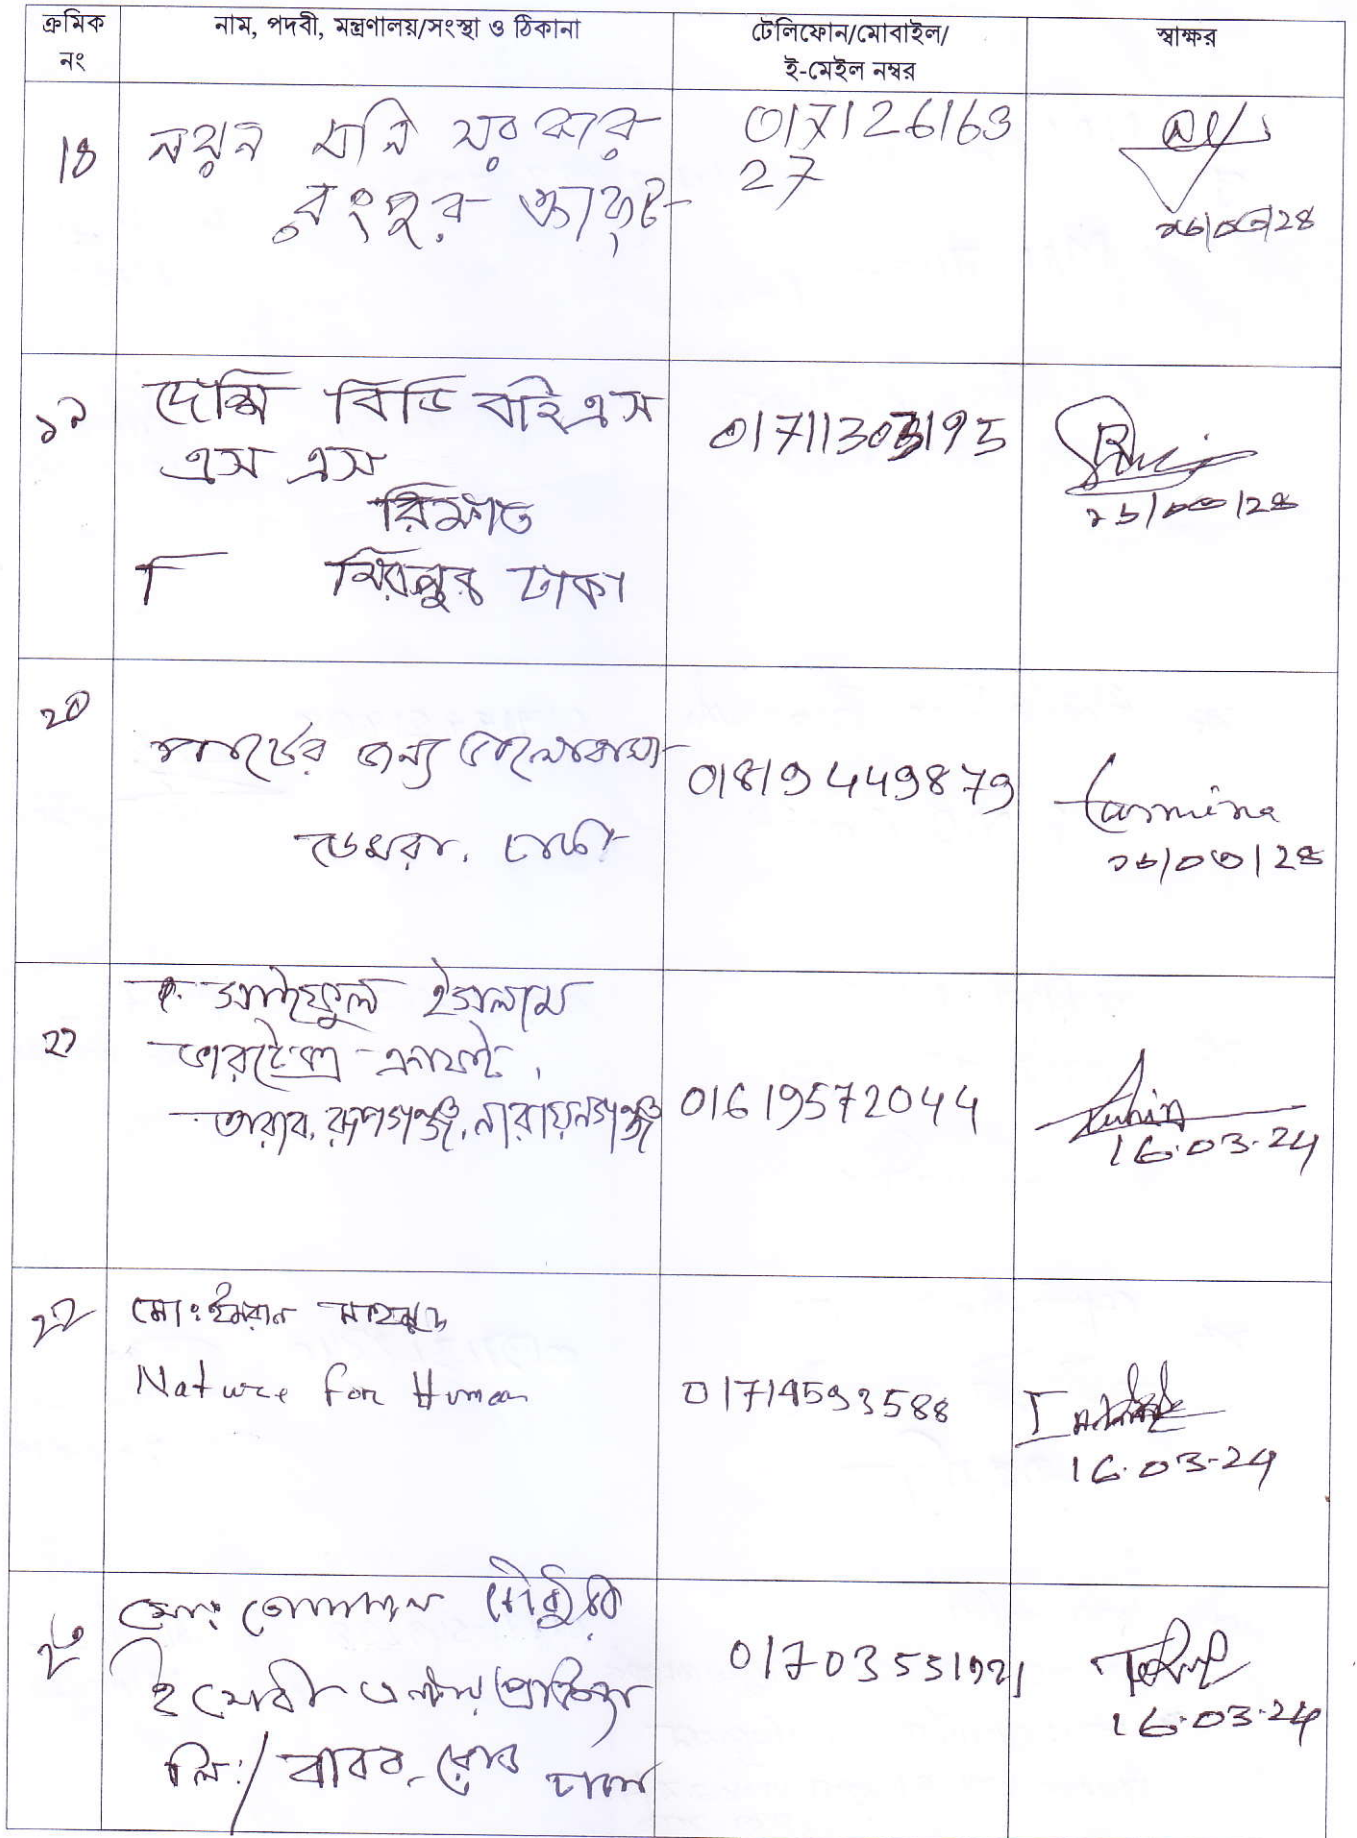 ক্রমিক
নং
নাম, পদবী, মন্ত্রণালয়/সংস্থা ও ঠিকানা
টেলিফোন/মোবাইল/
ই-মেইল নম্বর
স্বাক্ষর
18
নয়ন মনি সরকার
রংপুর ক্রাফ্ট
017126163
27
১৬/০৩/২৪
১৯
দেশি বিডি বাই এস
এস এস
রিফাত
মিরপুর ঢাকা
01711303195
১৬/০৩/২৪
২০
জন্য
ডেমরা, ঢাকা
01819449879
tasmina
১৬/০৩/২৪
২১
সাইফুল ইসলাম
তারাব, রূপগঞ্জ, নারায়নগঞ্জ
01619572044
16.03.24
২২
মোঃ ইমরান মাহমুদ
Nature for Human
01714593588
16.03-24
২৩
মোঃ
লি:/ রোড ঢাকা
01703551921
16.03.24